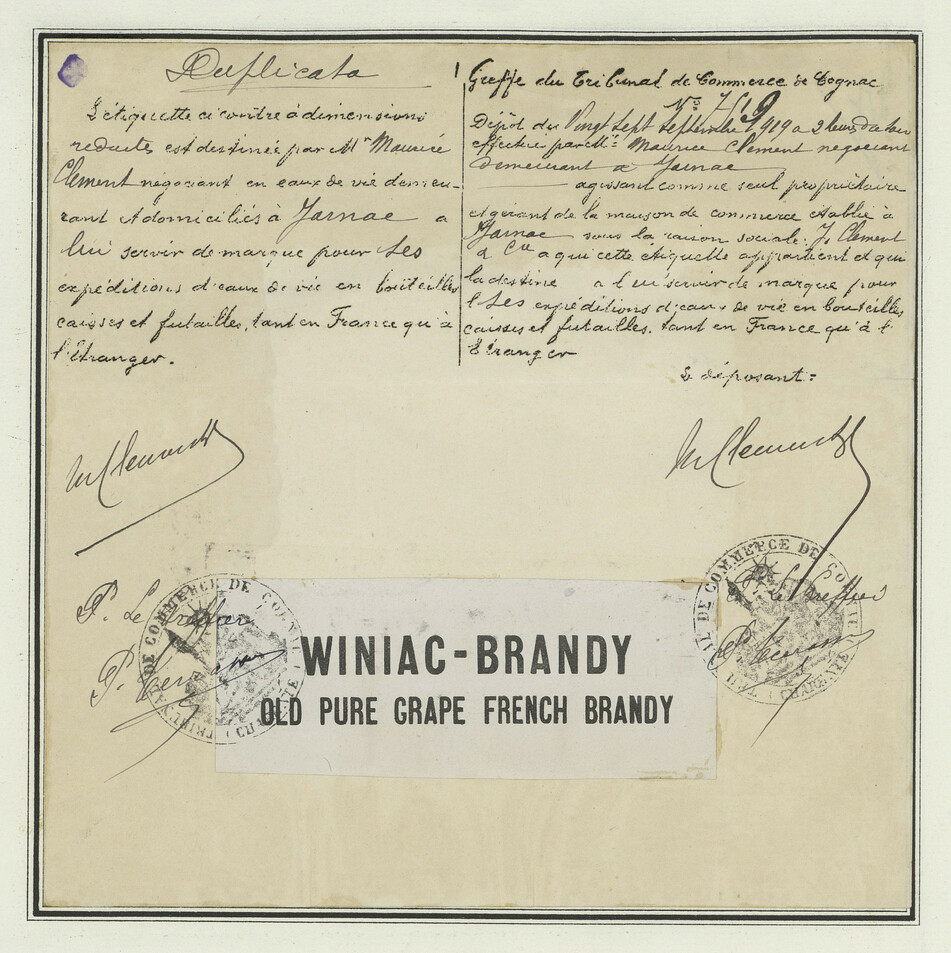 Duplicata
L'étiquette ci contre à dimensions
reduite est destinée par Mr Maurice
Clément négociant en eaux de vie demeu-
rant et domiciliés à Jarnac a
lui servir de marque pour Les
expéditions d'eaux de vie en bouteilles
caisses et futailles, tant en France qu'à
l'étranger.
Greffe du Tribunal de Commerce de Cognac
Dépôt du Vingt Sept Septembre 1919 a 2 heures du soir
effectué par Mr Maurice Clement negociant
demeurant a Jarnac
agissant comme seul propriétaire
et gérant de la maison de commerce établie à
Jarnac sous la raison sociale. J. Clement
& Cie a qui cette étiquette appartient et qui
la destine a lui servir de marque pour
Les expéditions d'eaux de vie en bouteilles
caisses et futailles. tant en France qu'à l'
Etranger
Le déposant =
M Clement
M Clement
P. Le Greffier
P. Le Greffier
TRIBUNAL DE COMMERCE DE COGNAC (CHARENTE)
TRIBUNAL DE COMMERCE DE COGNAC (CHARENTE)
WINIAC-BRANDY
OLD PURE GRAPE FRENCH BRANDY